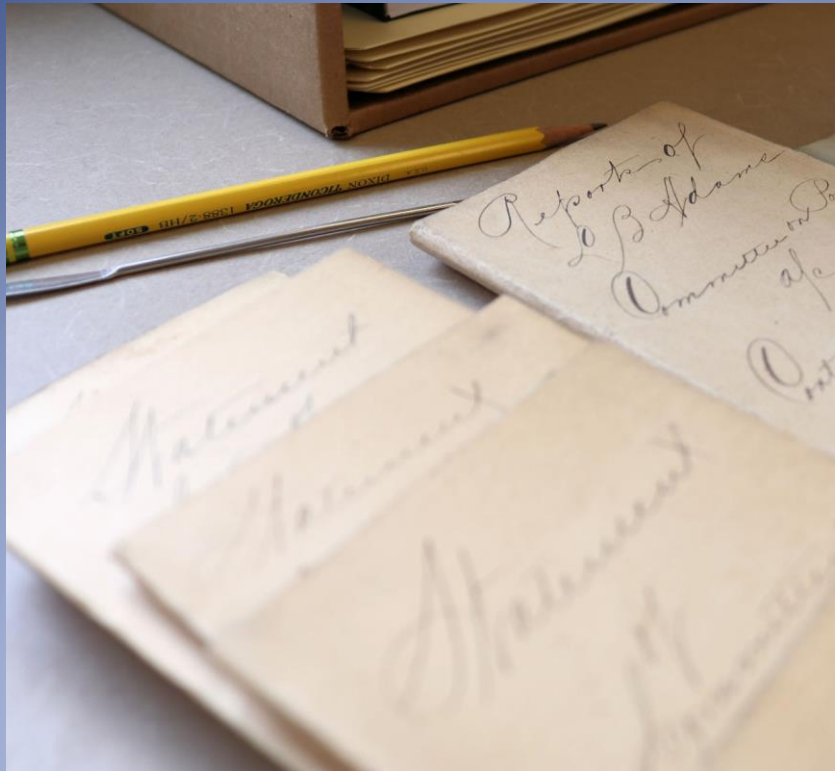 DIXON TICONDEROGA 1388-2/HB SOFT
Reports of
L B Adams
Committee on
a/c
Statement
Statement
Statement
of
Committee